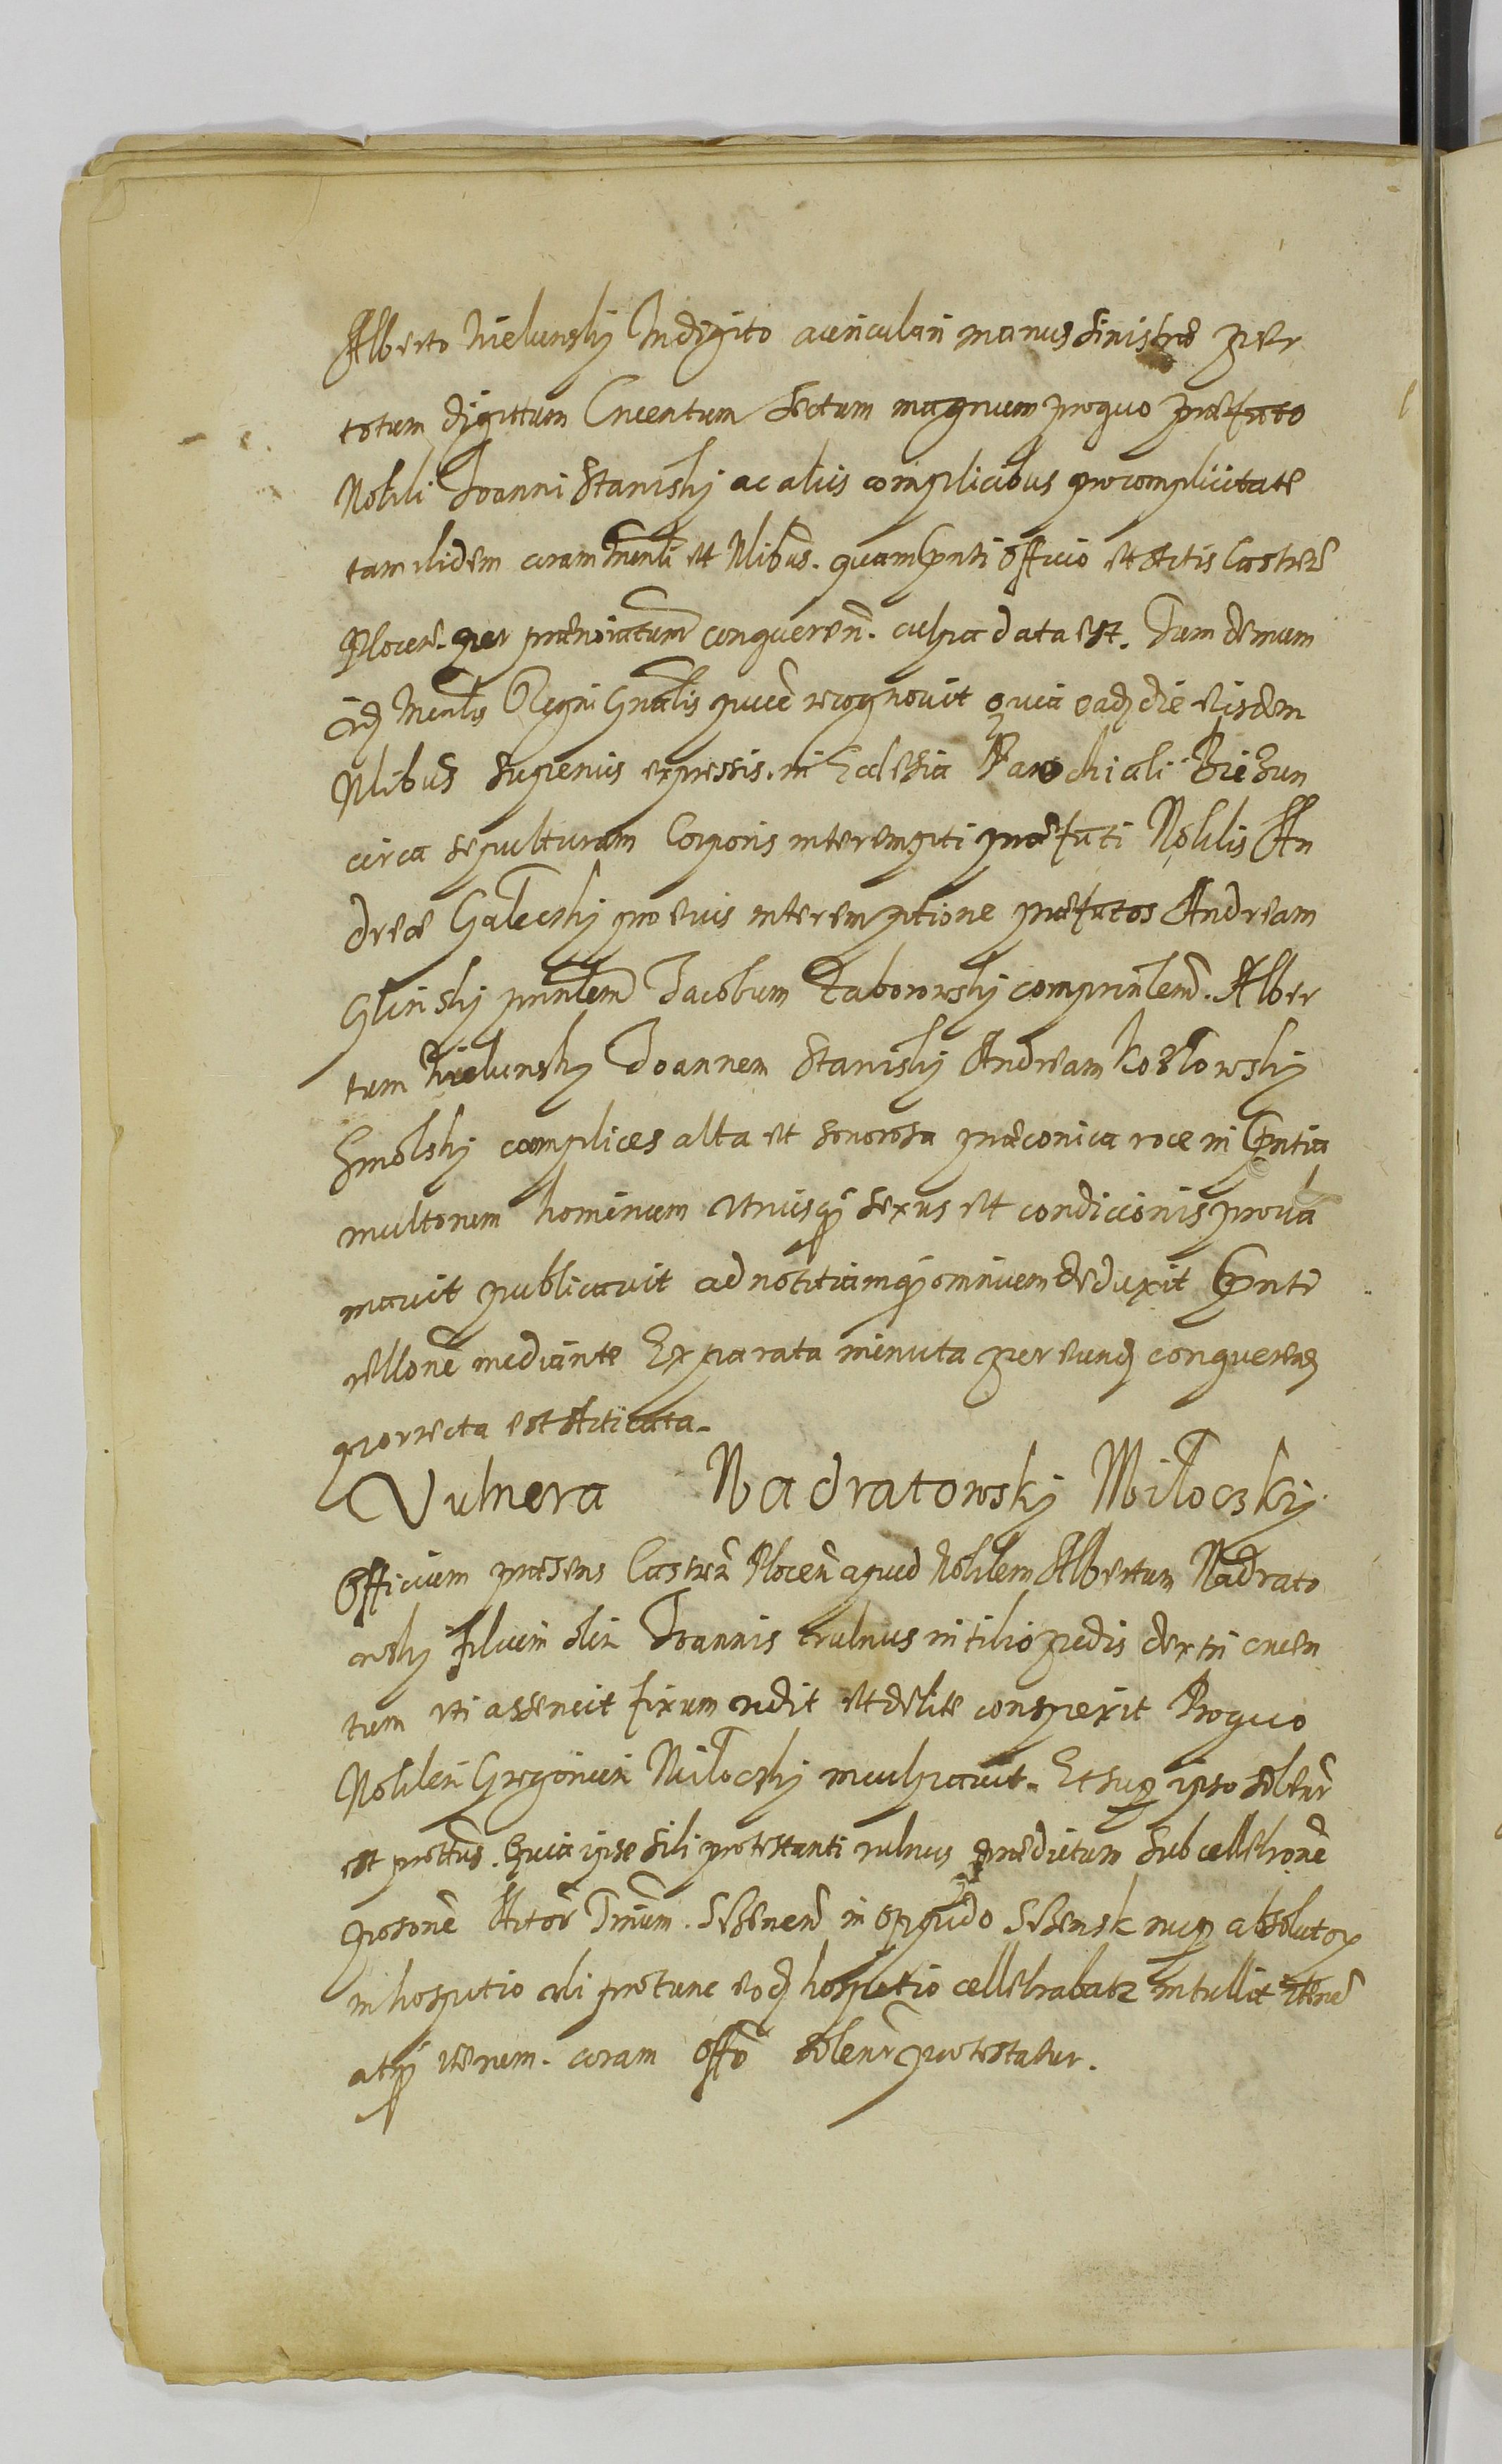 Alberto Wielunsky In digito auriculari manus sinistræ per
totum digitum Cruentum sectum magnum pro quo præfato
Nobili Joanni Stanisky ac aliis complicibus pro complicitate
tam ibidem coram mnrli et Nlibus. quam Cpnti officio et Actis Castren
Plocen. per prænoiatum conqueren. culpa data est. Tum demum
idq mnrlis Regni Gnalis recognovit quia eadq die eisdem
Nlibus superius expressis. in Ecclesia Parochiali Biezun
circa sepulturam Corporis interempti præfati Nobilis An
dreæ Galecsky pro eius interemptione præfatos Andream
Glinsky prinlem Jacobum Zaborowsky comprinlem. Alber
tum Wielunsky Joannem Stanisky Andream Kozlowsky
Smolsky complices alta et sonorosa præconica voce in Cpntia
multorum hominum utriusq sexus et condicionis procla
mavit publicavit ad notitiamq omnium deduxit Cpnti
rellone mediante Ex parata minuta per eundq conquerenq
porrecta est Acticata.
Vulnera Nadratowsky Miloczky
Officium præsens Castren Plocen apud Nobilem Albertum Nadrato
wsky filium olim Joannis vulnus in tibio pedis dextri cruen
tum uti asseruit fixum vidit et debite conspexit Pro quo
Nobilem Gregorium Miloczky inculpavit. Et sup ipso solenr
est prottus. Quia ipse sibi protestanti vulnus prædictum sub cellebrone
posone Actor Trium. in oppido nup absolutor
in hospitio ubi pro tunc eodq hospitio cellebrabatr intullit iterum
atq iterum. coram offo solenr protestatur.